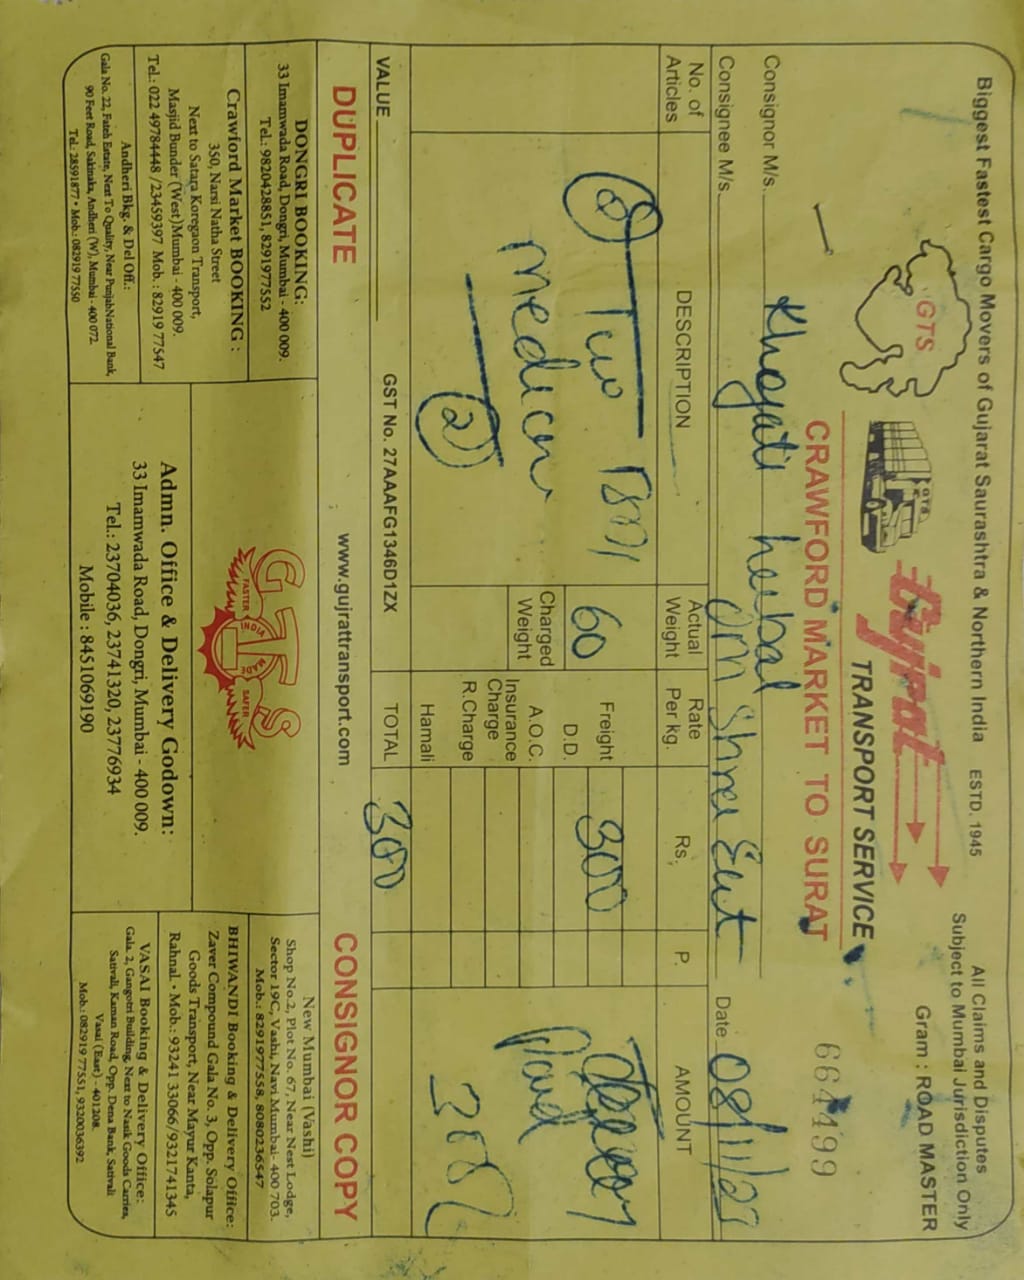 Biggest Fastest Cargo Movers of Gujarat Saurashtra & Northern India ESTD. 1945
All Claims and Disputes
Subject to Mumbai Jurisdiction Only
Gram : ROAD MASTER
GTS
GTS
Gujrat
TRANSPORT SERVICE
CRAWFORD MARKET TO SURAT
661499
Consignor M/s. Khayati
Consignee M/s. Om Shree
Date 08/11/22
No. of Articles
DESCRIPTION
Actual Weight
Rate Per kg.
Rs.
P.
AMOUNT
2 Two
60
Freight 300
D.D.
Charged Weight
A.O.C.
Insurance Charge
R.Charge
Hamali
2
Paid
300/
VALUE
GST No. 27AAAFG1346D1ZX
TOTAL 300
DUPLICATE
www.gujrattransport.com
CONSIGNOR COPY
DONGRI BOOKING:
33 Imamwada Road, Dongri, Mumbai - 400 009.
Tel.: 9820428851, 8291977552
Crawford Market BOOKING :
350, Narsi Natha Street
Next to Satara Koregaon Transport,
Masjid Bunder (West)Mumbai - 400 009.
Tel.: 022 49784448 /23459397 Mob. : 82919 77547
Andheri Bkg. & Del Off.:
Gala No. 22, Fateh Estate, Next To Quality, Near PunjabNational Bank,
90 Feet Road, Sakinaka, Andheri (W), Mumbai - 400 072.
Tel.: 28591877 • Mob.: 082919 77550
GTS
FASTER
INDIA
MADE
SAFER
Admn. Office & Delivery Godown:
33 Imamwada Road, Dongri, Mumbai - 400 009.
Tel.: 23704036, 23741320, 23776934
Mobile : 8451069190
New Mumbai (Vashi)
Shop No.2, Plot No. 67, Near Nest Lodge,
Sector 19C, Vashi, Navi Mumbai- 400 703.
Mob.: 8291977558, 8080236547
BHIWANDI Booking & Delivery Office:
Zaver Compound Gala No. 3, Opp. Solapur
Goods Transport, Near Mayur Kanta,
Rahnal. • Mob.: 93241 33066/9321741345
VASAI Booking & Delivery Office:
Gala. 2, Gangotri Building, Next to Nasik Goods Carries,
Sativali, Kaman Road, Opp. Dena Bank, Sativali
Vasai (East) - 401208.
Mob.: 082919 77551, 9320036392